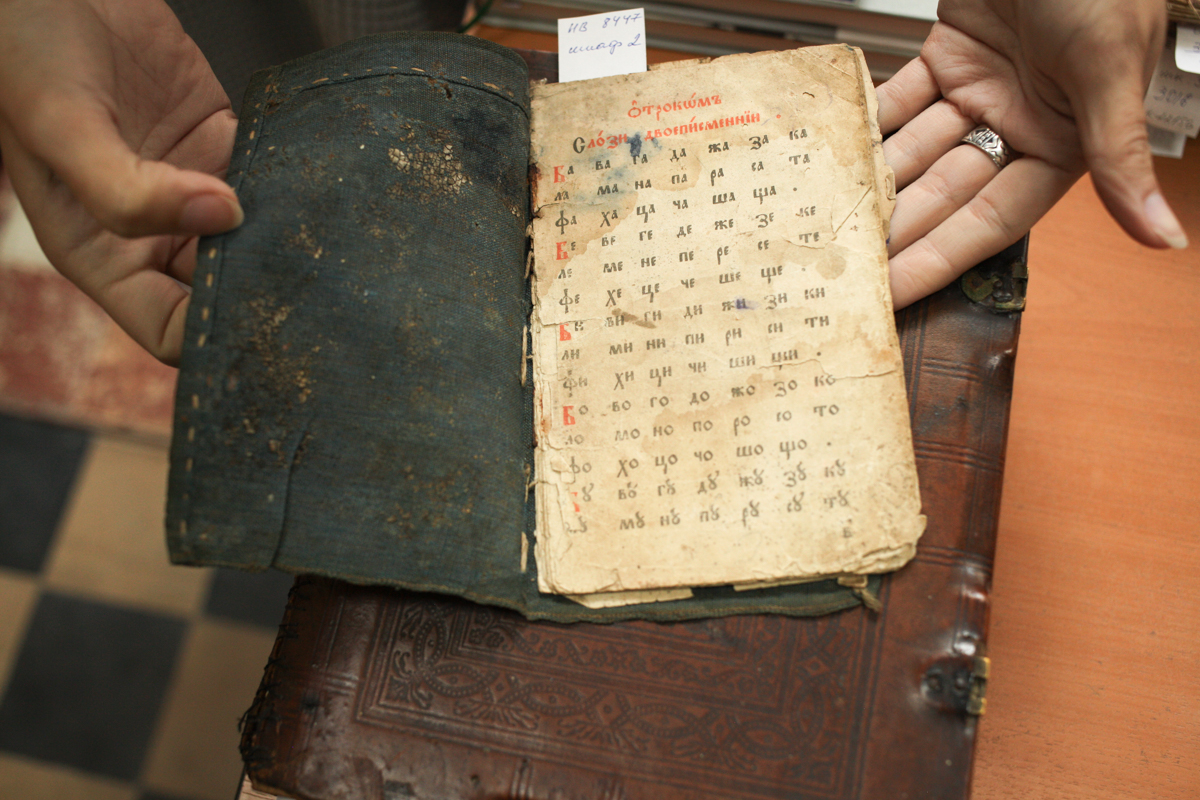 ИВ 8447
шкаф 2
Отрокѡмъ
Слози двописменнїи .
Ба ва га да жа за ка
ла ма на па ра са та
фа ха ца ча ша ща .
Бе ве ге де же зе ке
ле ме не пе ре се те
фе хе це че ше ще .
Би ви ги ди жи зи ки
ли ми ни пи ри си ти
фи хи ци чи ши щи .
Бо во го до жо зо ко
ло мо но по ро со то
фо хо цо чо шо що .
Бꙋ вꙋ гꙋ дꙋ жꙋ зꙋ кꙋ
лꙋ мꙋ нꙋ пꙋ рꙋ сꙋ тꙋ